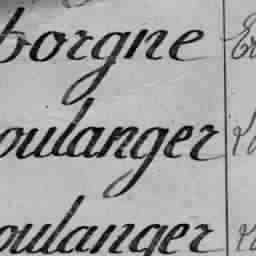 borgne
oulanger
oulanger